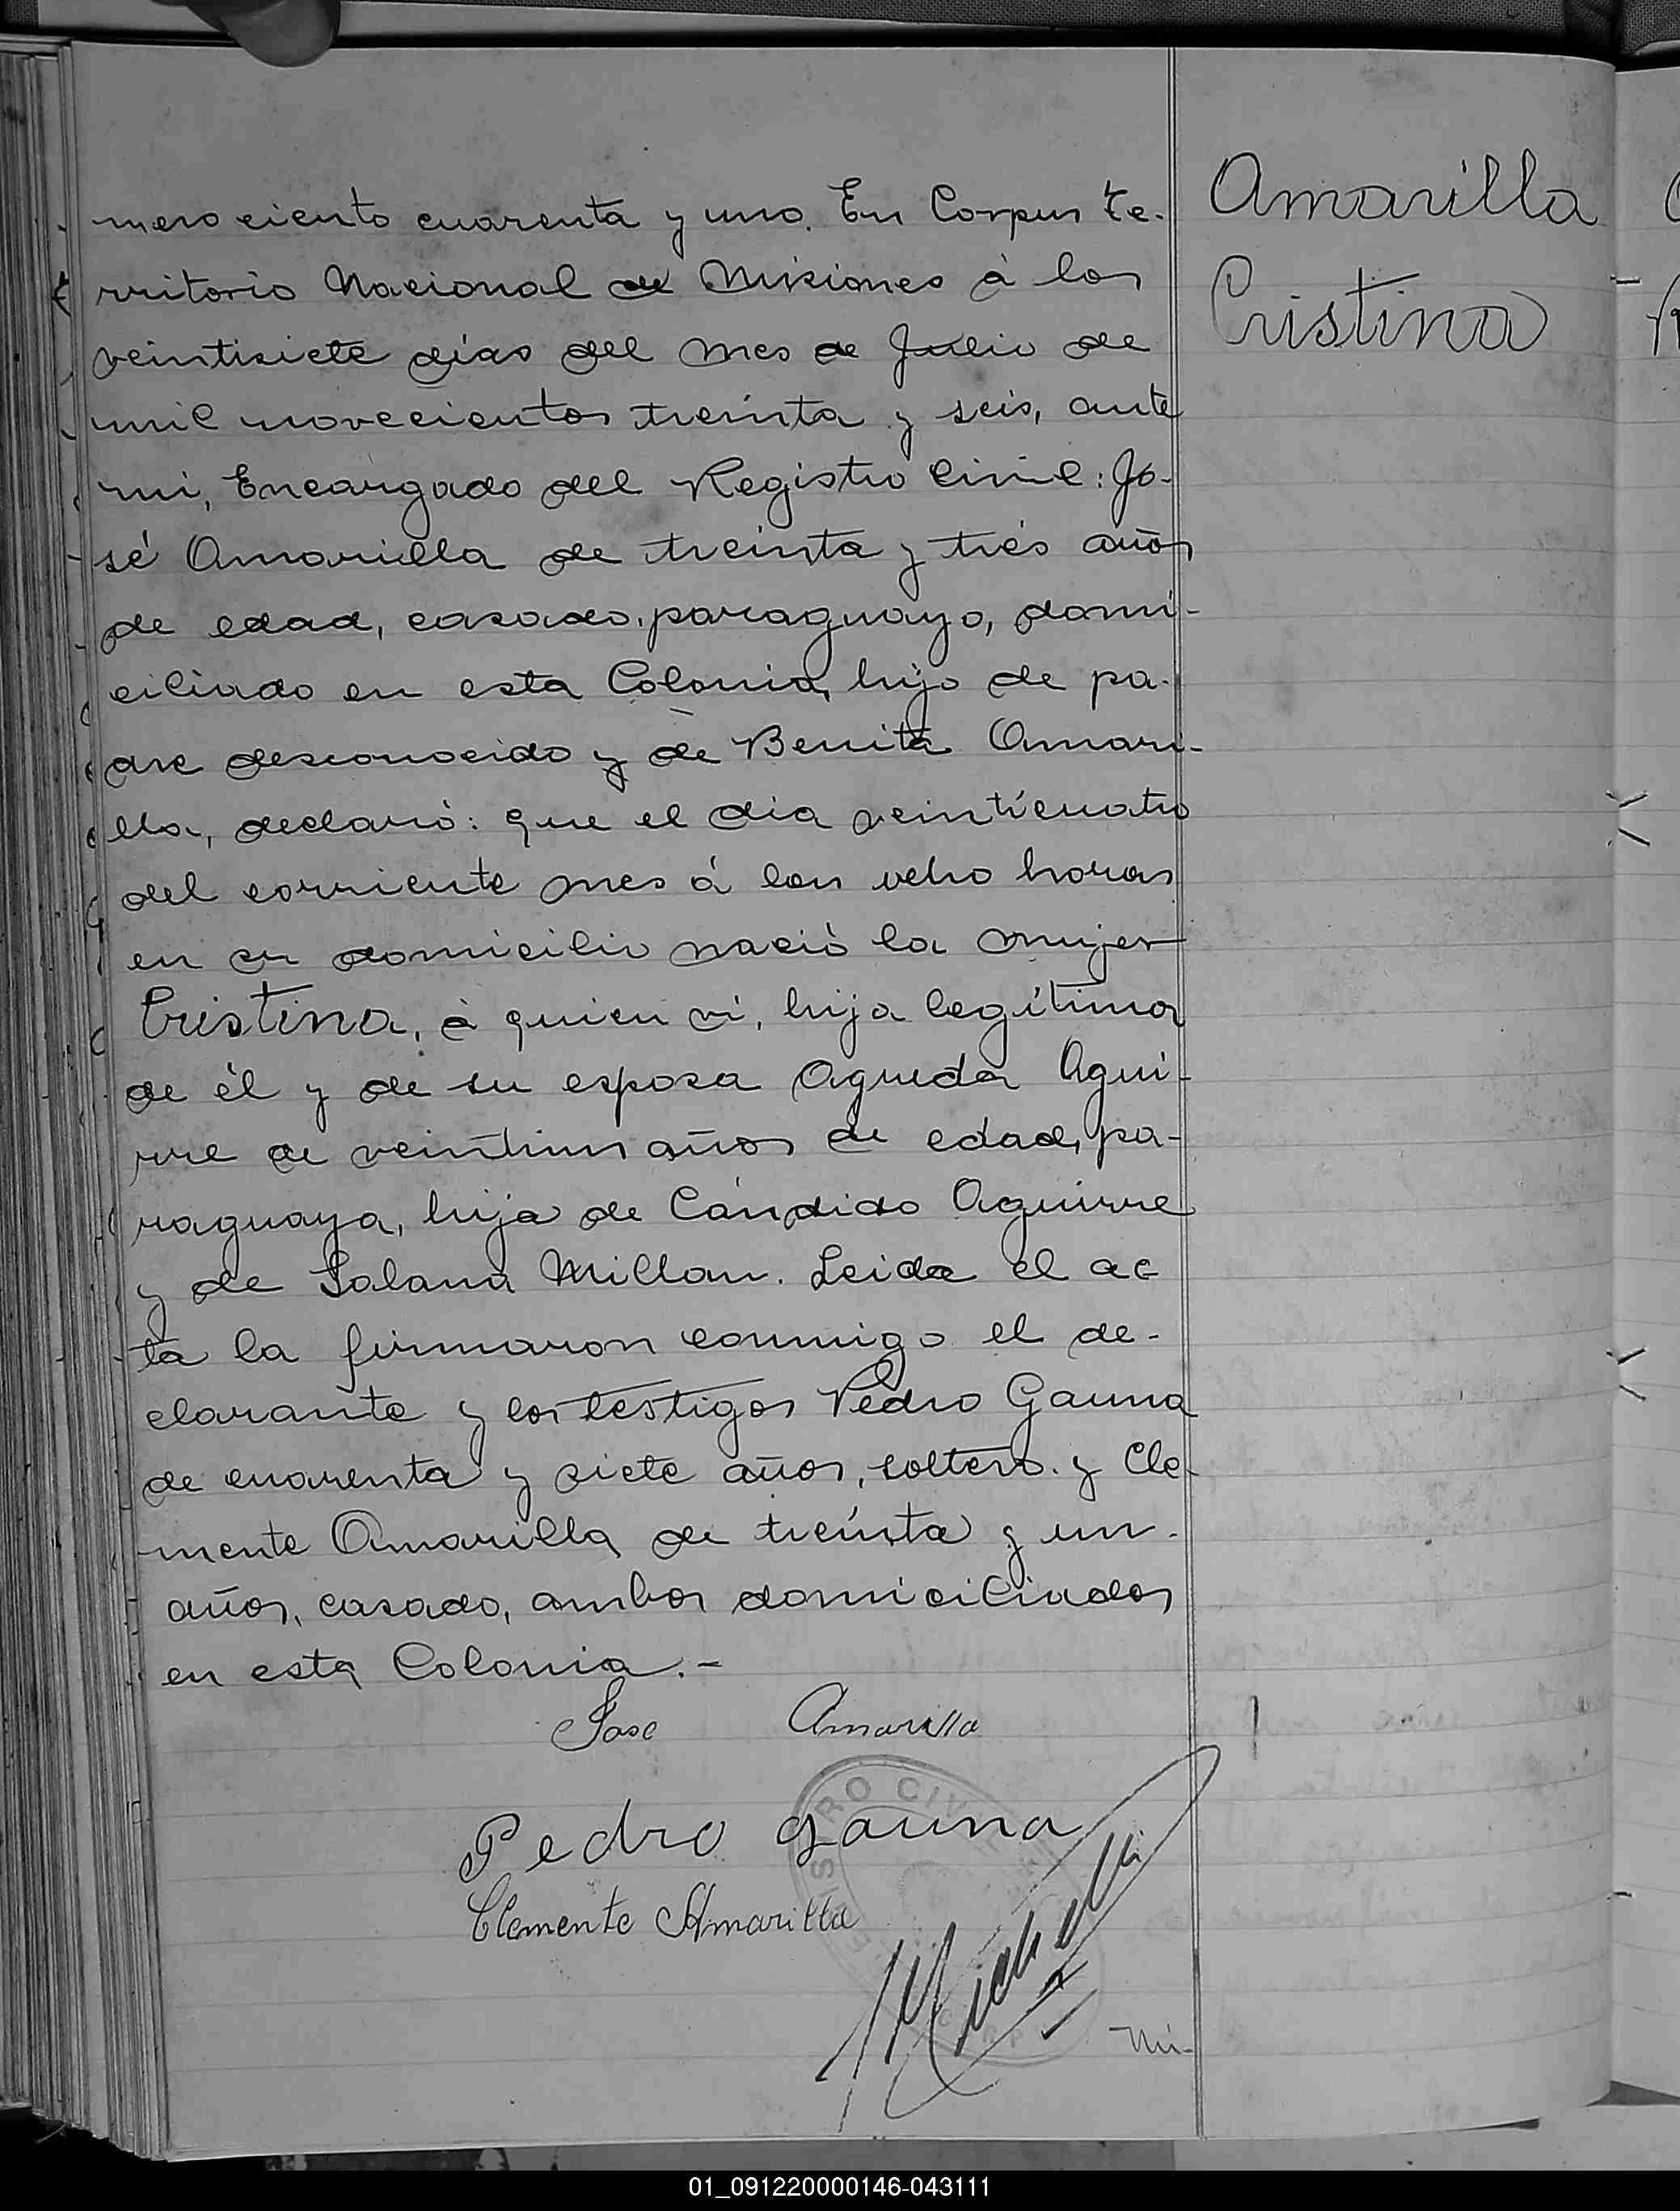 Amarilla
Cristina
mero ciento cuarenta y uno. En Corpus te-
rritorio Nacional de Misiones à los
veintisiete días del mes de Julio de
mil novecientos treinta y seis, ante
mi, Encargado del Registro Civil: Jo-
sé Amarilla de treinta y trés años
de edad, casado, paraguayo, domi-
ciliado en esta Colonia, hijo de pa-
dre desconocido y de Benita Amari-
lla, declaró: que el dia veinticuatro
del corriente mes á las ocho horas
en su domicilio nació la mujer
Cristina, à quien vi, hija legítima
de él y de su esposa Agueda Agui-
rre de veintiun años de edad, pa-
raguaya, hija de Cándido Aguirre
y de Salana Millan. Leida el ac-
ta la firmaron conmigo el de-
clarante y los testigos Pedro Gauna
de cuarenta y siete años, soltero. y Cle-
mente Amarilla de treinta y un
años, casado, ambos domiciliados
en esta Colonia.-
Jose Amarilla
Pedro Gauna
Clemente Amarilla
REGISTRO CIVIL
Nú-
01_091220000146-043111